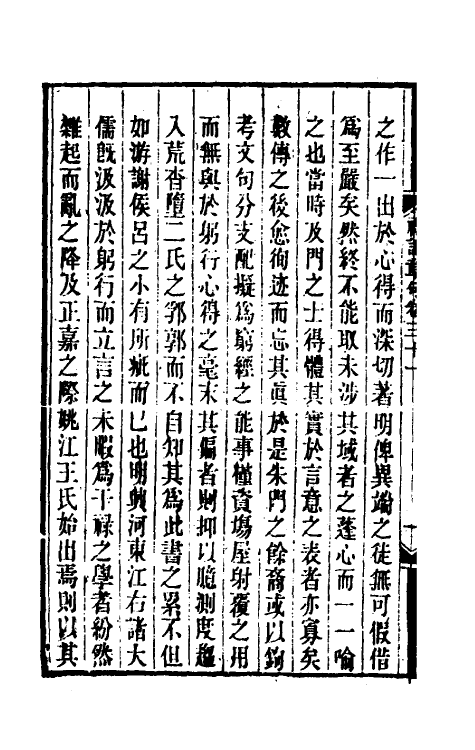 禮記章句卷三十一
之作一出於心得而深切著明俾異端之徒無可假借
爲至嚴矣然終不能取未涉其域者之蓬心而一一喻
之也當時及門之士得體其實於言意之表者亦寡矣
數傳之後愈徇迹而忘其眞於是朱門之餘裔或以鉤
考文句分支配擬爲窮經之能事僅資塲屋射覆之用
而無與於躬行心得之毫末其偏者則抑以臆測度趨
入荒杳墮二氏之郛郭而不自知其爲此書之累不但
如游謝侯呂之小有所疵而已也明興河東江右諸大
儒旣汲汲於躬行而立言之未暇爲干祿之學者紛然
雜起而亂之降及正嘉之際姚江王氏始出焉則以其